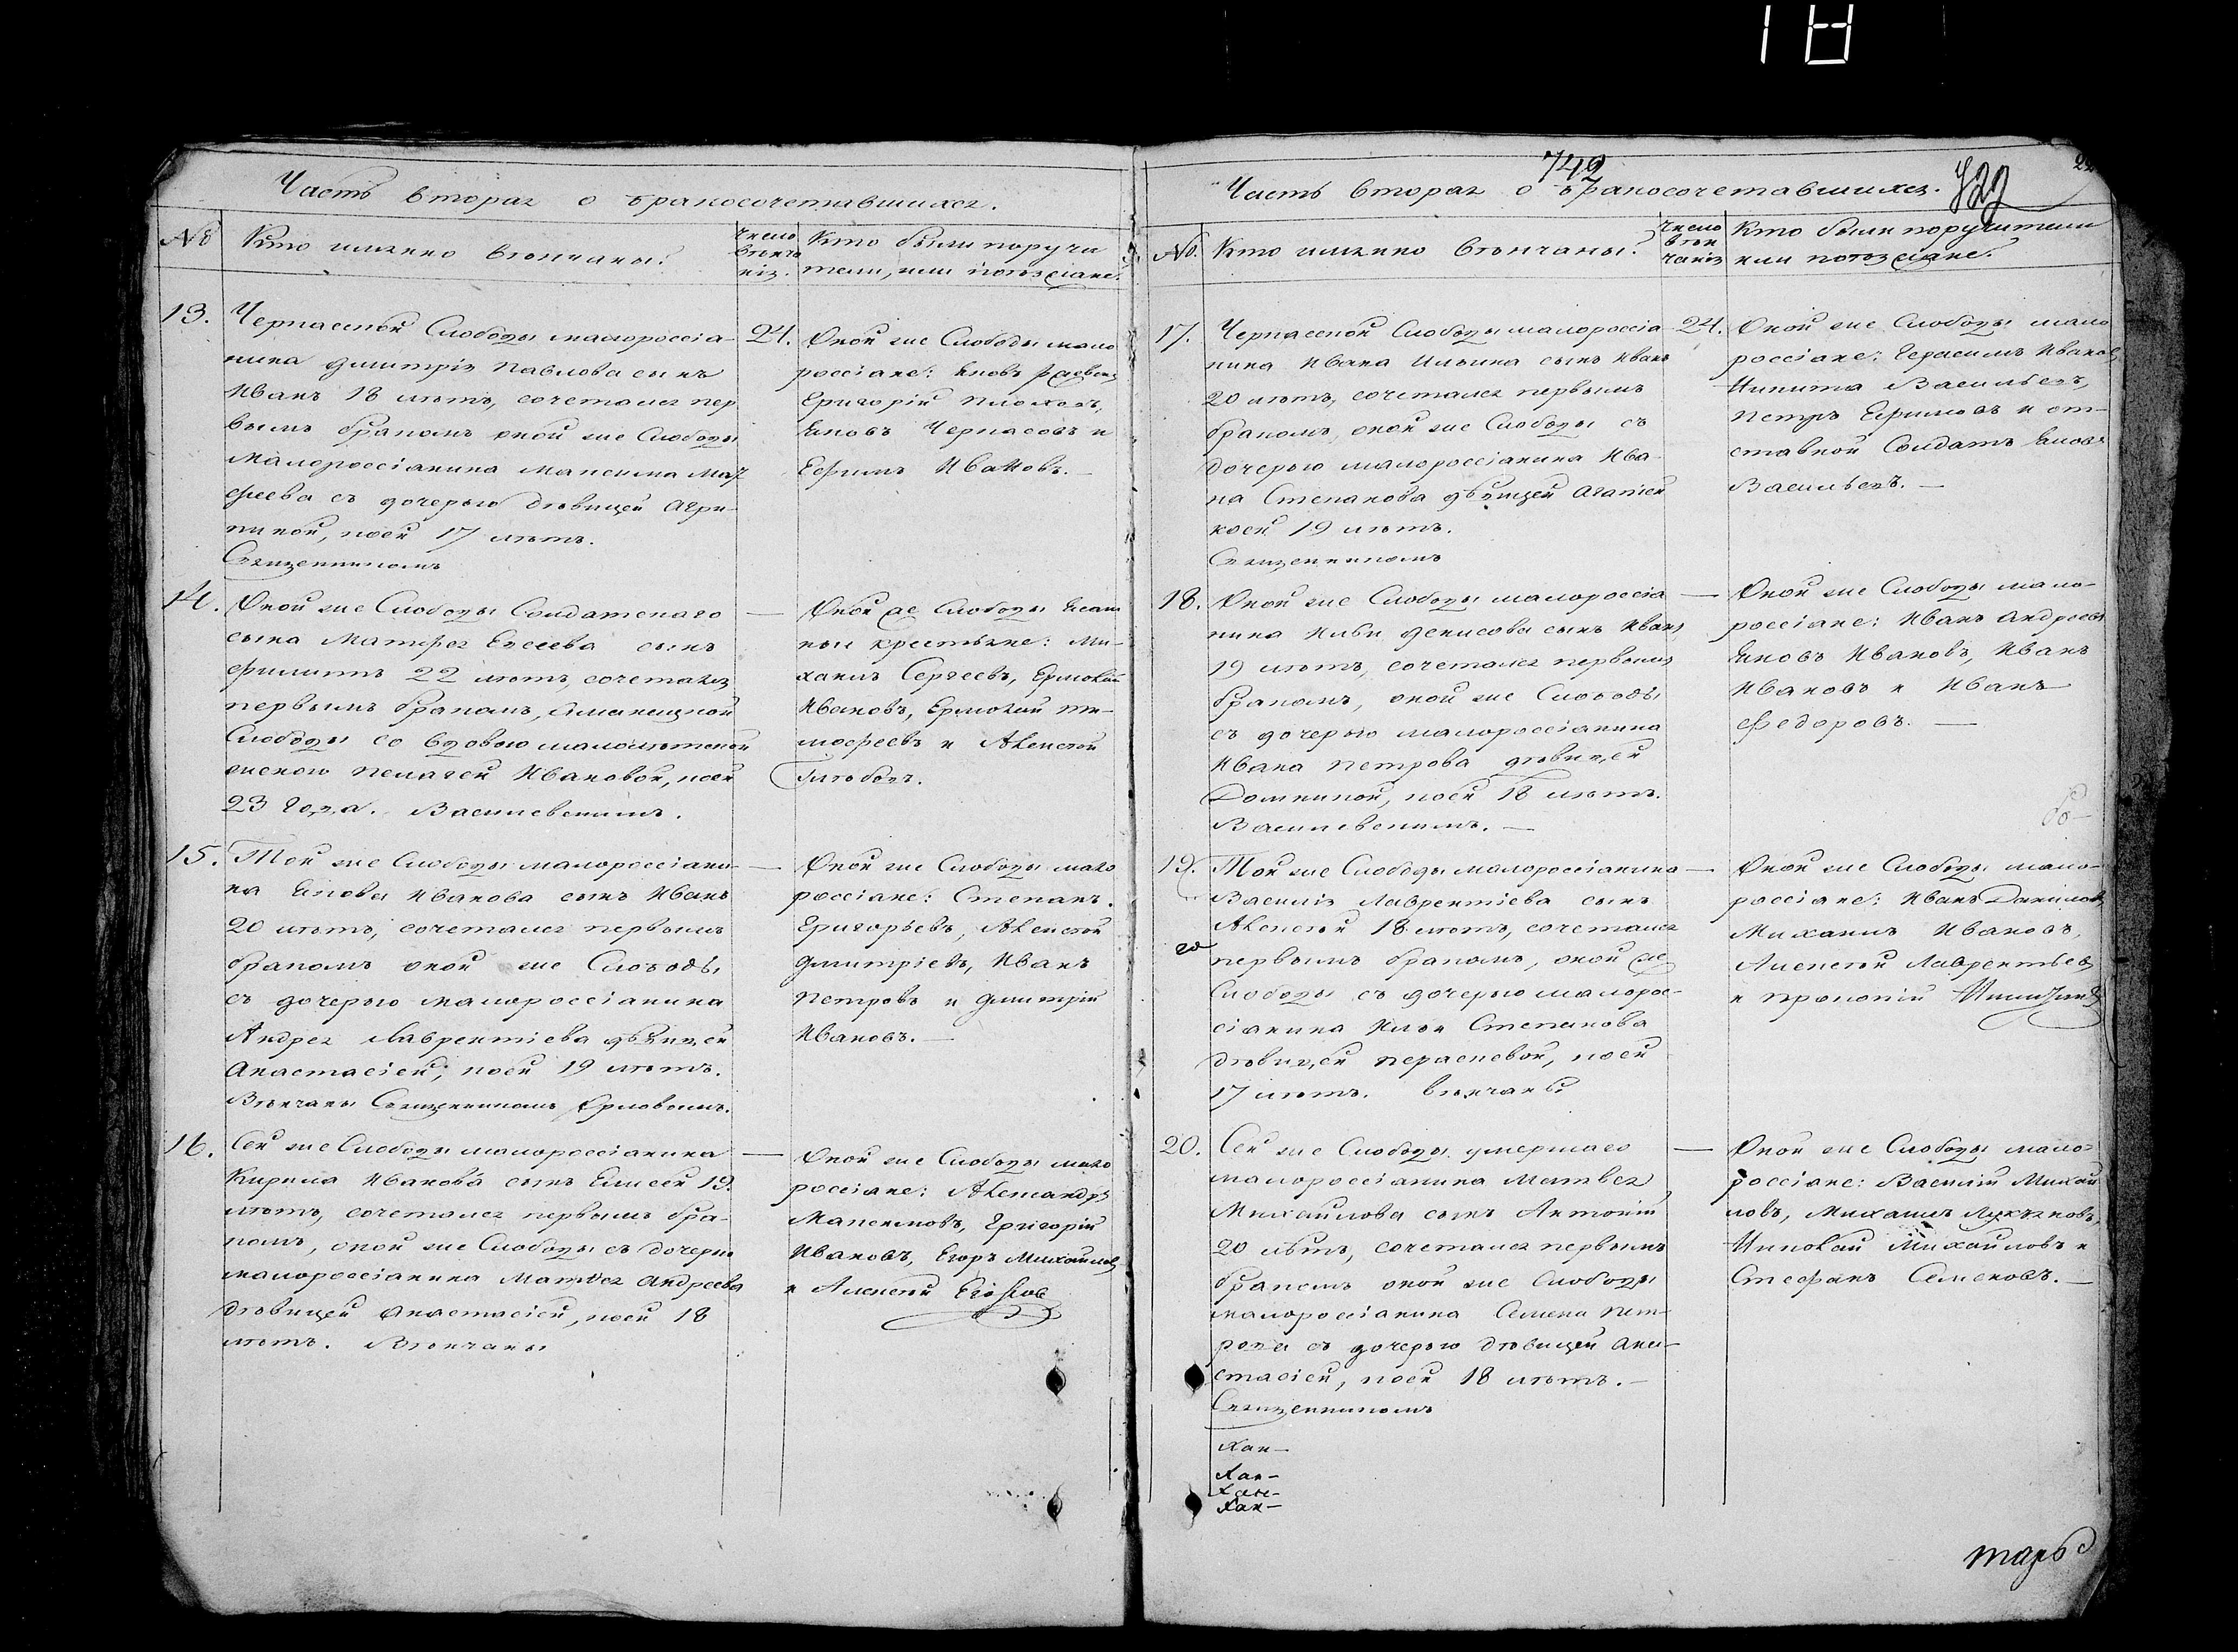 18
Часть вторая о бракосочетавшихся.
№
Кто имянно венчаны?
число
венча
нія.
Кто были поручи
тели, или поезжане?
13.
Черкасской Слободы малороссія-
нина Димитрія Павлова сынъ
Иванъ 18 летъ, сочетался пер
вымъ бракомъ оной же Слободы
Малороссіянина Максима Мат
феева съ дочерью девицей Агри-
пиной, коей 17 летъ.
Священникомъ
24.
Оной же Слободы мало
россіане: Яковъ
Григорій
Яковъ Черкасовъ и
Ефимъ Ивановъ.
14.
Оной же Слободы Солдатскаго
сына Матфея Елсеева сынъ
Филиппъ 22 летъ, сочетался
первымъ бракомъ,
Слободы со вдовою малолетской
женкою Пелагеей Ивановой, коей
23 года. Василевскимъ.
—
Оной же Слободы Ясаш
ныи крестьяне: Ми-
хаилъ Сергеевъ, Ермолай
Ивановъ, Ермолай Ти-
мофеевъ и Алексей
Глебовъ.
15.
Той же Слободы малороссіани-
на Якова Иванова сынъ Иванъ
20 летъ, сочетался первымъ
бракомъ оной же Слободы
съ дочерью малороссіанина
Андрея Лаврентіева девицей
Анастасіей, коей 19 летъ.
Венчаны Священникомъ Орловымъ.
—
Оной же Слободы мало
россіане: Степанъ
Григорьевъ, Алексей
Димитріевъ, Иванъ
Петровъ и Димитрій
Ивановъ.
16.
Сей же Слободы малороссіанина
Кирила Иванова сынъ Елисей 19.
летъ, сочетался первымъ бра-
комъ, оной же Слободы съ дочерью
малороссіанина Матвея Андреева
девицей Анастасіей, коей 18
летъ. Венчаны
—
Оной же Слободы мало
россіане: Александръ
Максимовъ, Григорій
Ивановъ, Егоръ Михайловъ
и Алексей Егоровъ
742
Часть вторая о бракосочетавшихся.
№.
Кто имянно венчаны?
число
вен
чанія
Кто были поручители
или поезжане?
17.
Черкасской Слободы малороссіа
нина Ивана Ильина сынъ Иванъ
20 летъ, сочетался первымъ
бракомъ, оной же Слободы съ
дочерью малороссіанина Ива-
на Степанова девицей Агафіей
коей 19 летъ.
Священникомъ
24.
Оной же Слободы мало
россіане: Герасимъ Ивановъ
Никита Васильевъ,
Петръ Ефимовъ и от-
ставной Солдатъ Яковъ
Васильевъ.—
18.
Оной же Слободы малороссіа
нина Денисова сынъ Иванъ
19 летъ, сочетался первымъ
бракомъ, оной же Слободы
съ дочерью малороссіанина
Ивана Петрова девицей
Домникой, коей 18 летъ.
Василевскимъ.—
—
Оной же Слободы мало-
россіане: Иванъ Андреевъ
Яковъ Ивановъ, Иванъ
Ивановъ и Иванъ
Федоровъ.—
19.
Той же Слободы малороссіанина
Василія Лаврентіева сынъ
Алексей 18 летъ, сочетался
первымъ бракомъ, оной же
Слободы съ дочерью малорос-
сіанина Ильи Степанова
девицей Парасковой, коей
17 летъ. венчаны
—
Оной же Слободы мало-
россіане: Иванъ Даниловъ,
Михаилъ Ивановъ,
Алексей Лаврентьевъ
и Прокопій
20.
Сей же Слободы умершаго
малороссіанина Матвея
Михайлова сынъ Антоній
20 летъ, сочетался первымъ
бракомъ оной же Слободы
малороссіанина Семена Пет-
рова съ дочерью девицей Ана-
стасіей, коей 18 летъ.—
Священникомъ
—
Оной же Слободы мало-
россіане: Василій Михай
ловъ, Михаилъ Лукьяновъ,
Николай Михайловъ и
Стефанъ Семеновъ.—